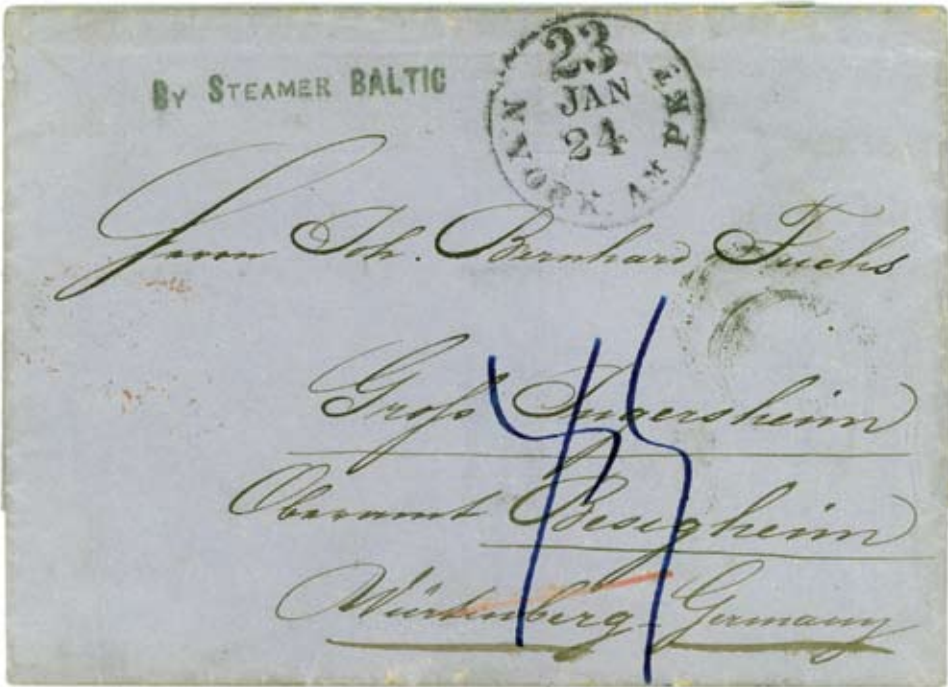 By STEAMER BALTIC
23
JAN
24
N. YORK. Am PKT
Herrn Joh. Bernhard Fuchs
Groß Ingersheim
Oberamt Besigheim
Würtemberg Germany